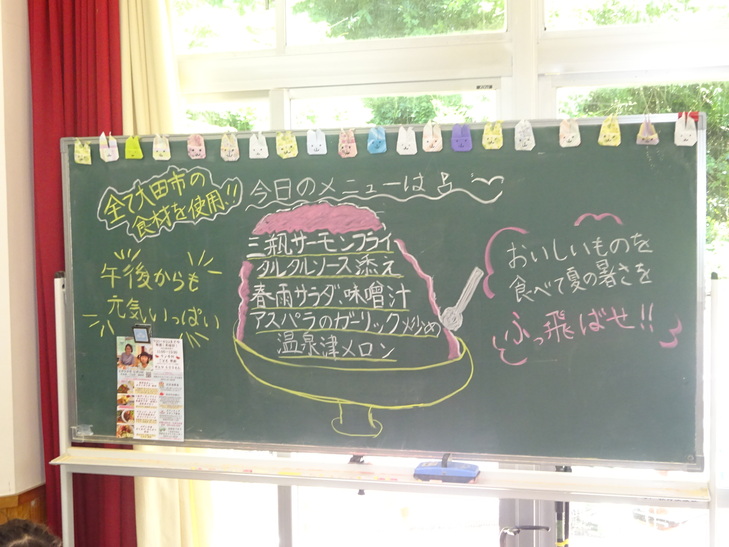 全て大田市の
食材を使用!!
今日のメニューは
三瓶サーモンフライ
タルタルソース添え
春雨サラダ・味噌汁
アスパラのガーリック炒め
温泉津メロン
午後からも
元気いっぱい
おいしいものを
食べて夏の暑さを
ふっ飛ばせ!!